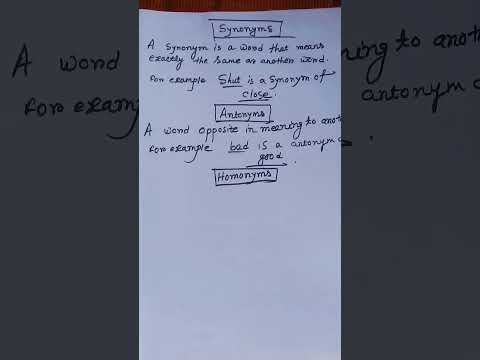 Synonyms
A synonym is a word that means
exactly the same as another word.
For example Shut is a synonym of
close.
Antonyms
A word opposite in meaning to anoth
For example bad is a antonym o
good.
Homonyms